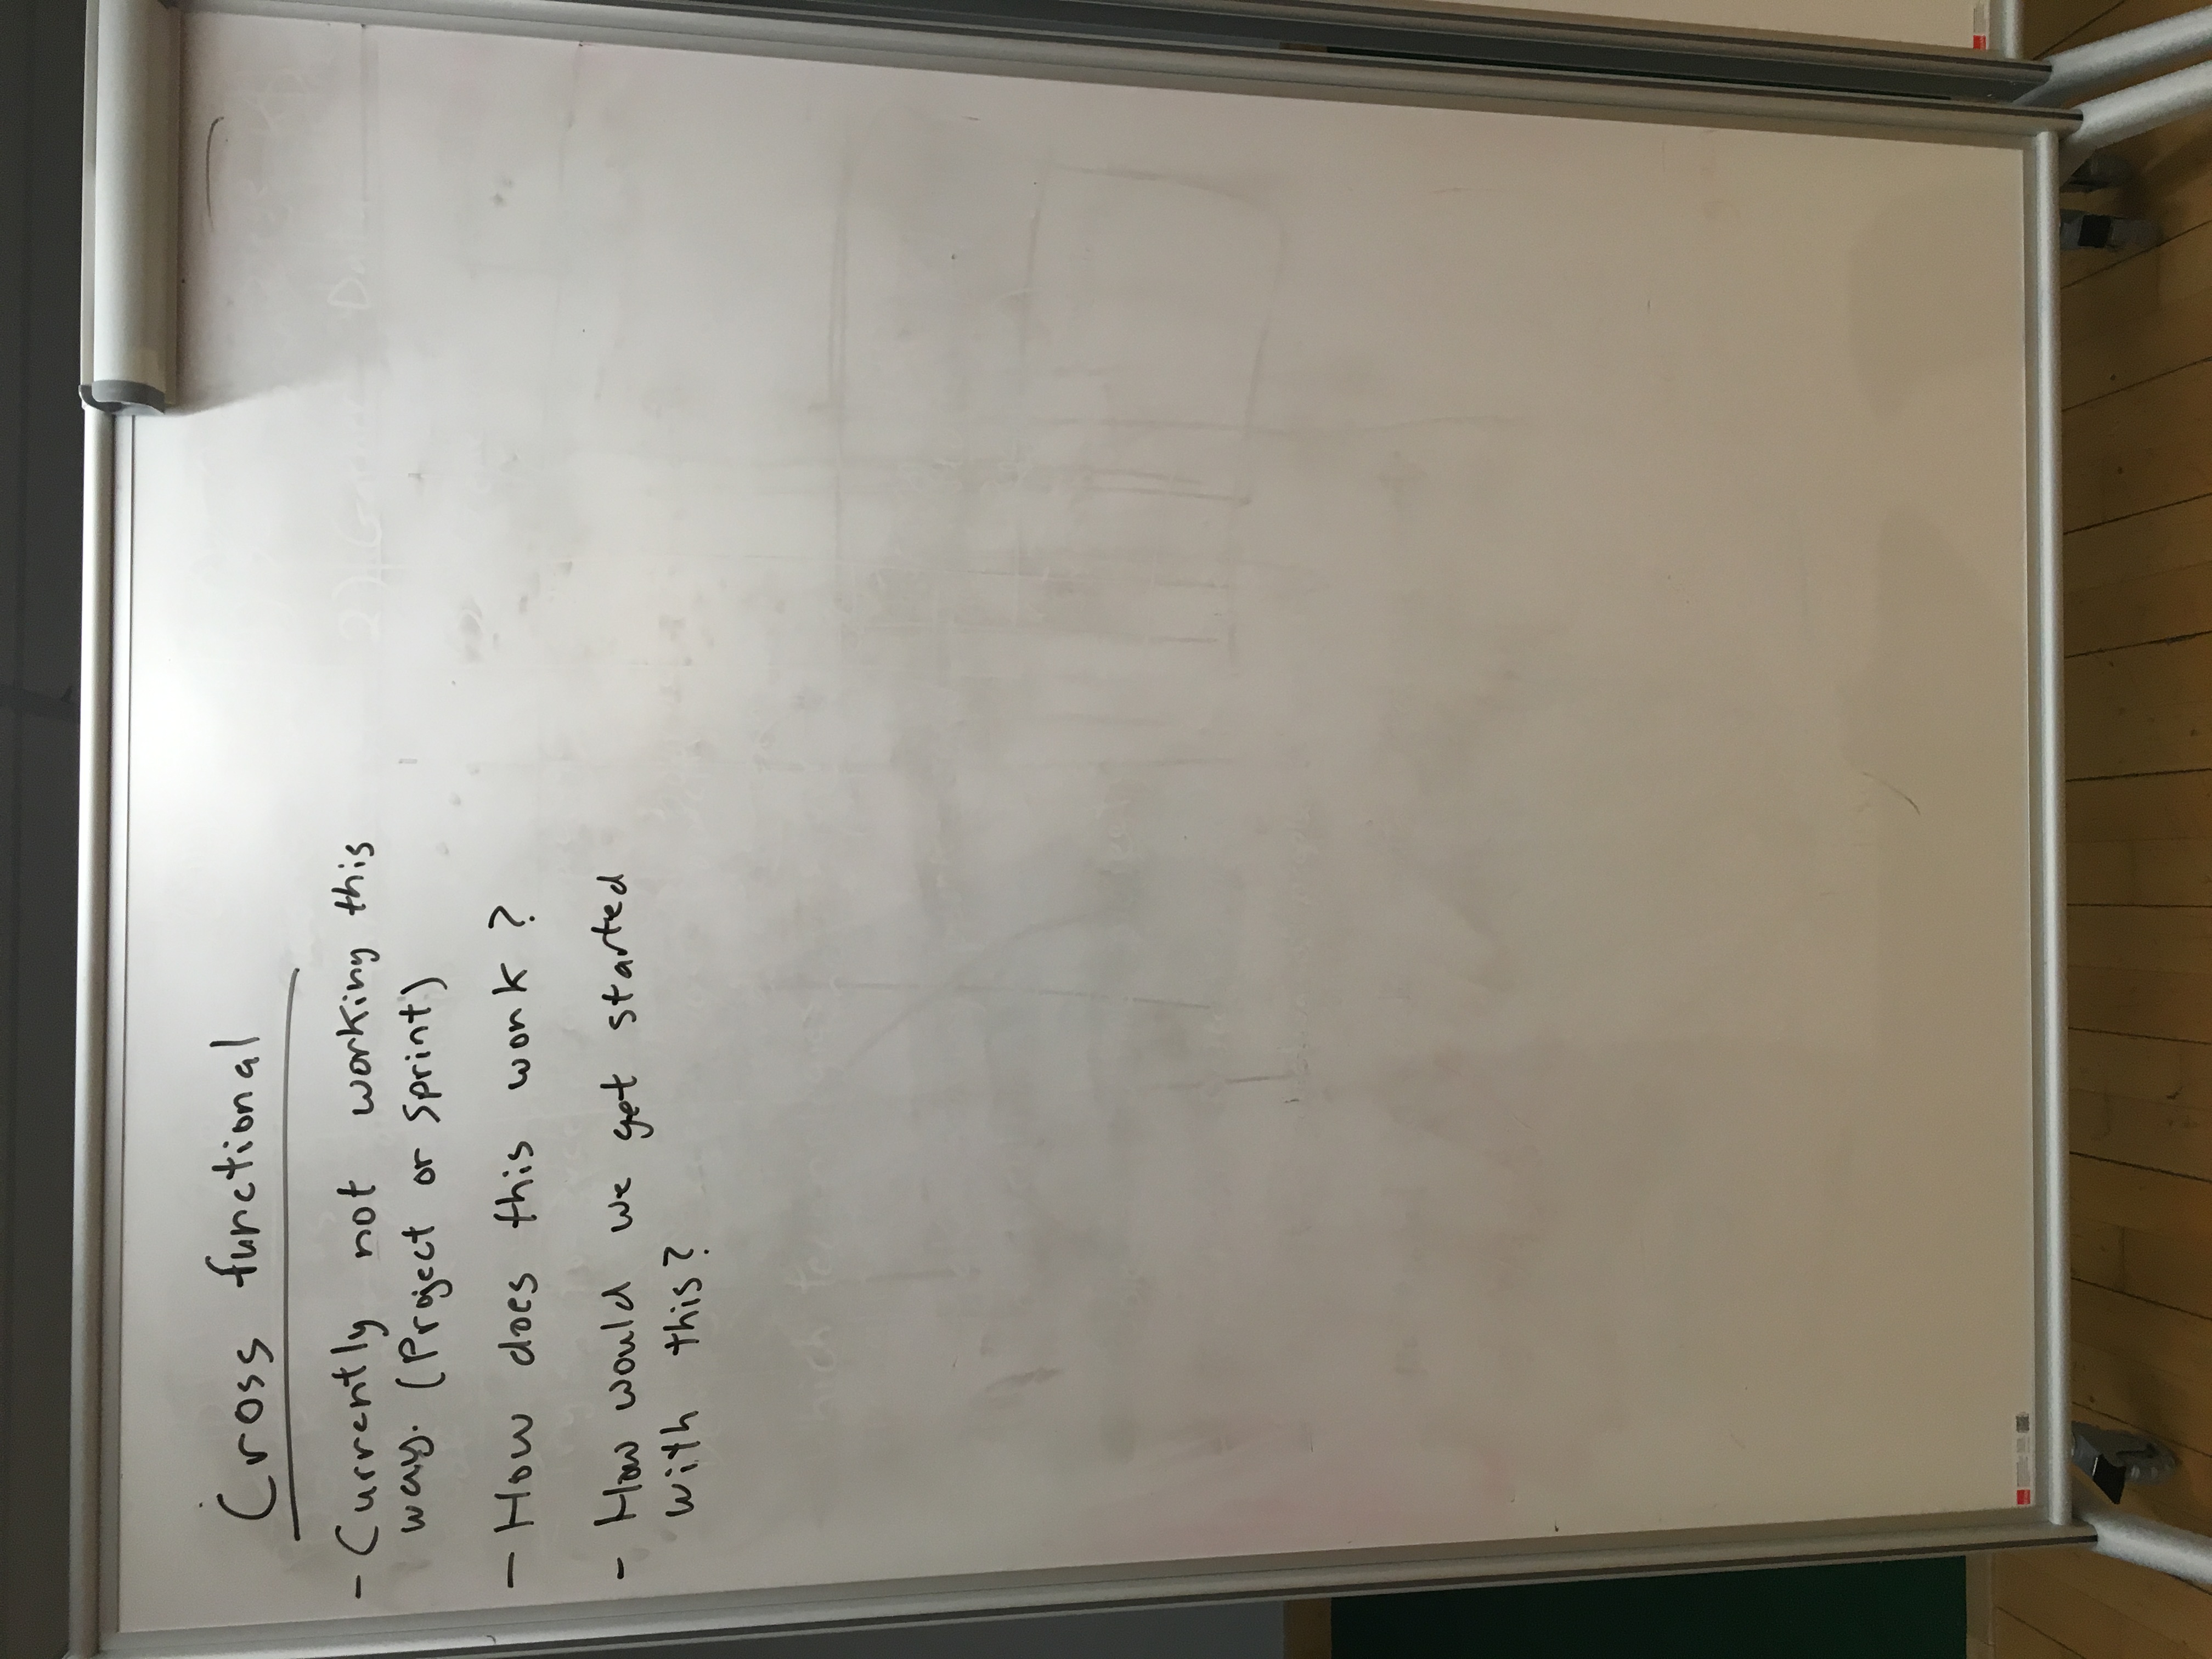 Cross functional
- Currently not working this
way. (Project or Sprint)
- How does this work?
- How would we get started
with this?
2) Gather Data